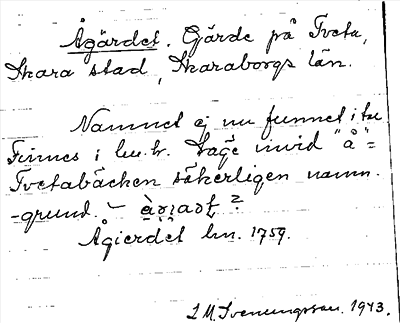 Ågärdet. Gärde på Tveta,
Skara stad, Skaraborgs län.
Namnet ej nu funnet i tu.
Finnes i lm. hr. Läge invid "å" =
Tvetabäcken säkerligen namn-
-grund. –
Ågierdet lm. 1759.
L M. Svenungsson. 1943.